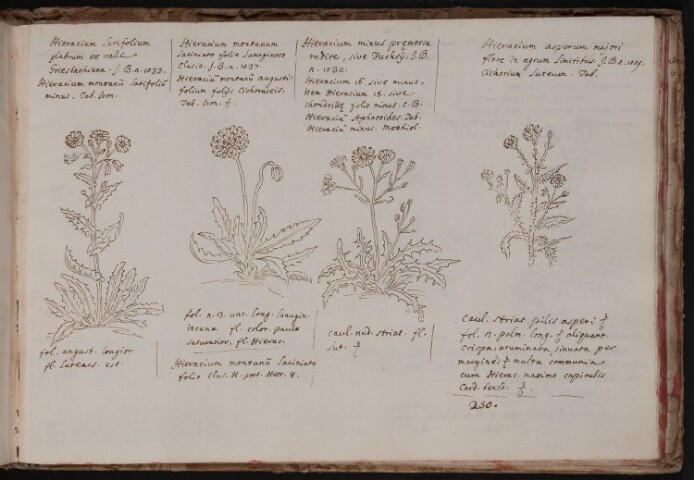 Hieracium latifolium
glabrum ex valle
Griesbachiana. J.B.n.1033.
Hieracium montanū latifoliū
minus. Tab. Icon.
Hieracium montanum
laciniato folio lanuginoso
Clusio. J.B.n.1037.
Hieraciū montanū angusti
folium folijs Cichoraceis.
Tab. Icon.
Hieracium minus præmorsa
radice, sive Fuchsij. J.B.
n. 1031.
Hieracium 16. sive minus,
Item Hieracium 18. sive
chondrillę folio minus. C.B.
Hieraciū Aphacoides. Tab.
Hieraciū minus. Mathiol.
Hieracium asperum majori
flore in agrum limititus. J.B.n.1029.
Cichorium luteum. Tab.
fol. angust. longior
fl. luteus. est
fol. n. 3. unc. long. lanugin.
incana fl. color. paulo
saturatior, fl. Hierac.
Hieracium montanū laciniato
folio Clus. H. post. Hier. 8.
caul. nud. strias. fl.
lut.
Caul. strias. pilis asperi
fol. n. palm. long. aliquant.
crispa, acuminata, sinuata per
margines multa communia
cum Hierac. maximo capitulis
Card. bened.
230.